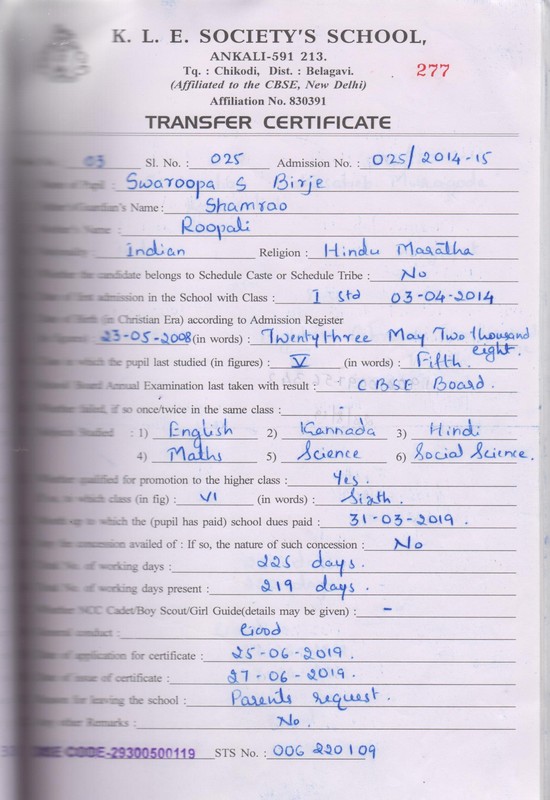 K. L. E. SOCIETY'S SCHOOL,
ANKALI-591 213.
Tq. : Chikodi, Dist. : Belagavi.
277
(Affiliated to the CBSE, New Delhi)
Affiliation No. 830391
TRANSFER CERTIFICATE
03 Sl. No. : 025 Admission No. : 025/2014-15
of Pupil : Swaroopa S Birje
Guardian's Name : Shamrao
Name : Roopali
Indian Religion : Hindu Maratha
Whether the candidate belongs to Schedule Caste or Schedule Tribe : No
Date of first admission in the School with Class : I Std 03-04-2014
Date of Birth (in Christian Era) according to Admission Register
23-05-2008 (in words) : Twentythree May Two thousand eight.
in which the pupil last studied (in figures) : V (in words) : Fifth.
Board Annual Examination last taken with result : CBSE Board.
Whether failed, if so once/twice in the same class :
Studied : 1) English 2) Kannada 3) Hindi
4) Maths 5) Science 6) Social Science.
Whether qualified for promotion to the higher class : Yes.
in which class (in fig) : VI (in words) : Sixth.
up to which the (pupil has paid) school dues paid : 31-03-2019.
concession availed of : If so, the nature of such concession : No
No. of working days : 225 days.
No. of working days present : 219 days.
Whether NCC Cadet/Boy Scout/Girl Guide(details may be given) : -
General conduct : Good
Date of application for certificate : 25-06-2019.
Date of issue of certificate : 27-06-2019.
Reason for leaving the school : Parents request.
Any other Remarks : No.
CODE-29300500119 STS No. : 006 220109